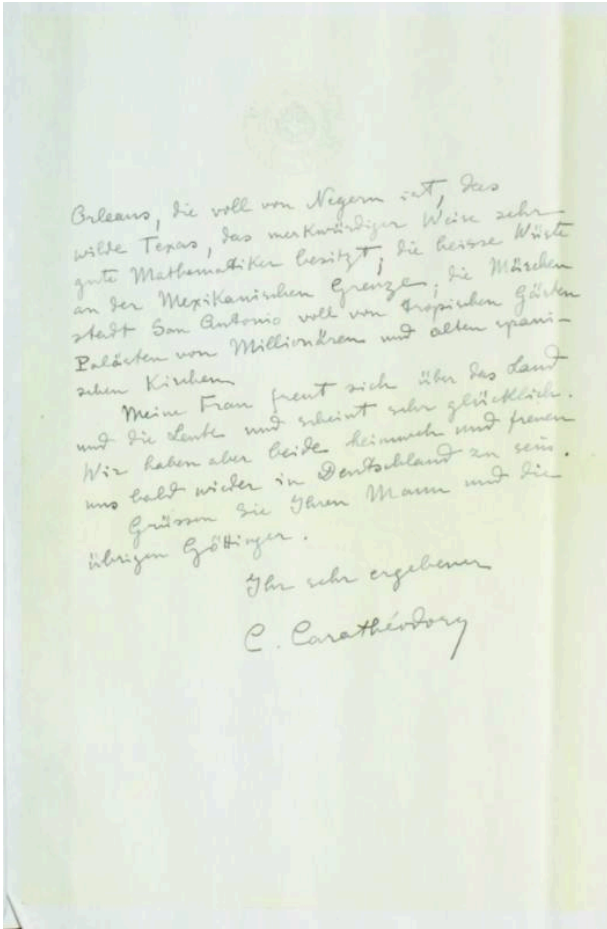 Orleans, die voll von Negern ist, das
wilde Texas, das merkwürdiger Weise sehr
gute Mathematiker besitzt; die heisse Wüste
an der Mexikanischen Grenze; die Märchen
stadt San Antonio voll von tropischen Gärten
Palästen von Millionären und alten spani-
schen Kirchen.
Meine Frau freut sich über das Land
und die Leute und scheint sehr glücklich.
Wir haben aber beide heimweh und freuen
uns bald wieder in Deutschland zu sein.
Grüssen Sie Ihren Mann und die
übrigen Göttinger.
Ihr sehr ergebener
C. Carathéodory